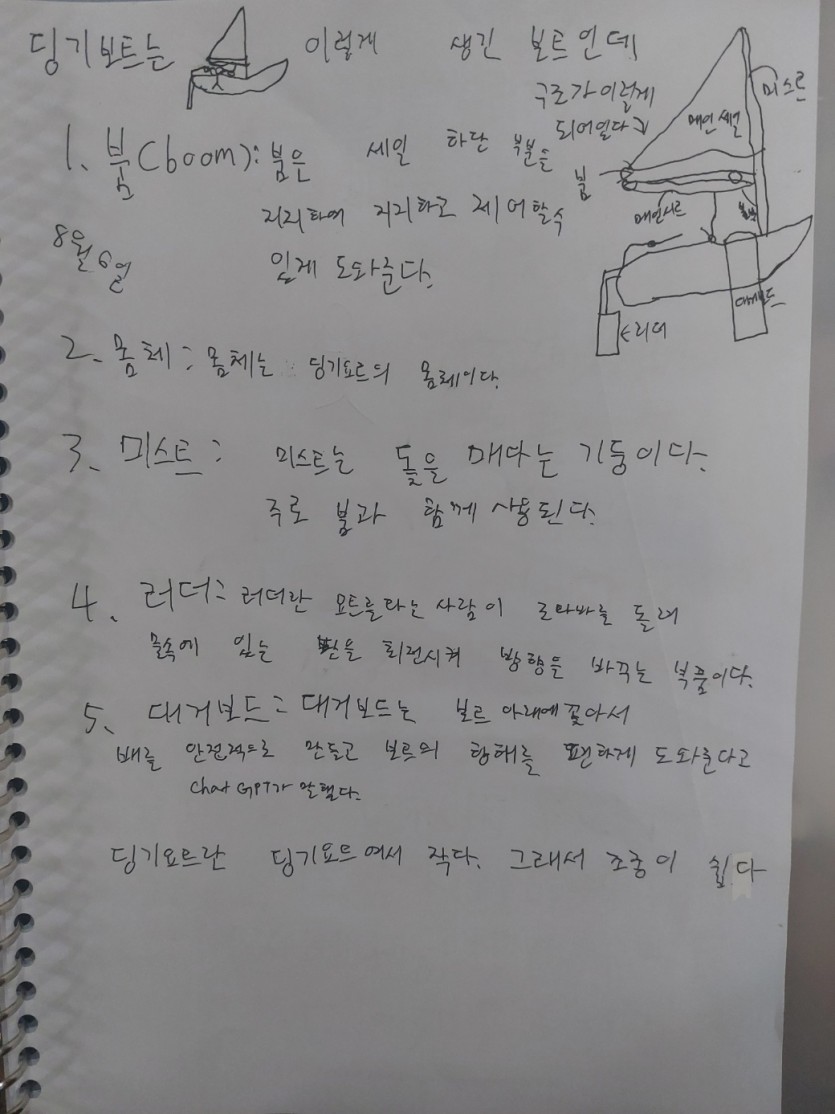 딩기보트는 이렇게 생긴 보트인데
구조가 이렇게
되어있다
1. 붐(boom): 붐은 세일 하단 부분을
지지하여 지지하고 제어할수
있게 도와준다.
8월6일
미스트
메인세일
붐
메인시트
대거보드
러더
2. 몸체: 몸체는 딩기요트의 몸체이다.
3. 미스트: 미스트는 돛을 매다는 기둥이다.
주로 붐과 함께 사용된다.
4. 러더: 러더란 요트를타는 사람이 돌려
물속에 있는 판을 회전시켜 방향을 바꾸는 부품이다.
5. 대거보드: 대거보드는 보트 아래에 꽂아서
배를 안전적으로 만들고 보트의 항해를 편하게 도와준다고
Chat GPT가 말했다.
딩기요트란 딩기요트여서 작다. 그래서 조종이 쉽다